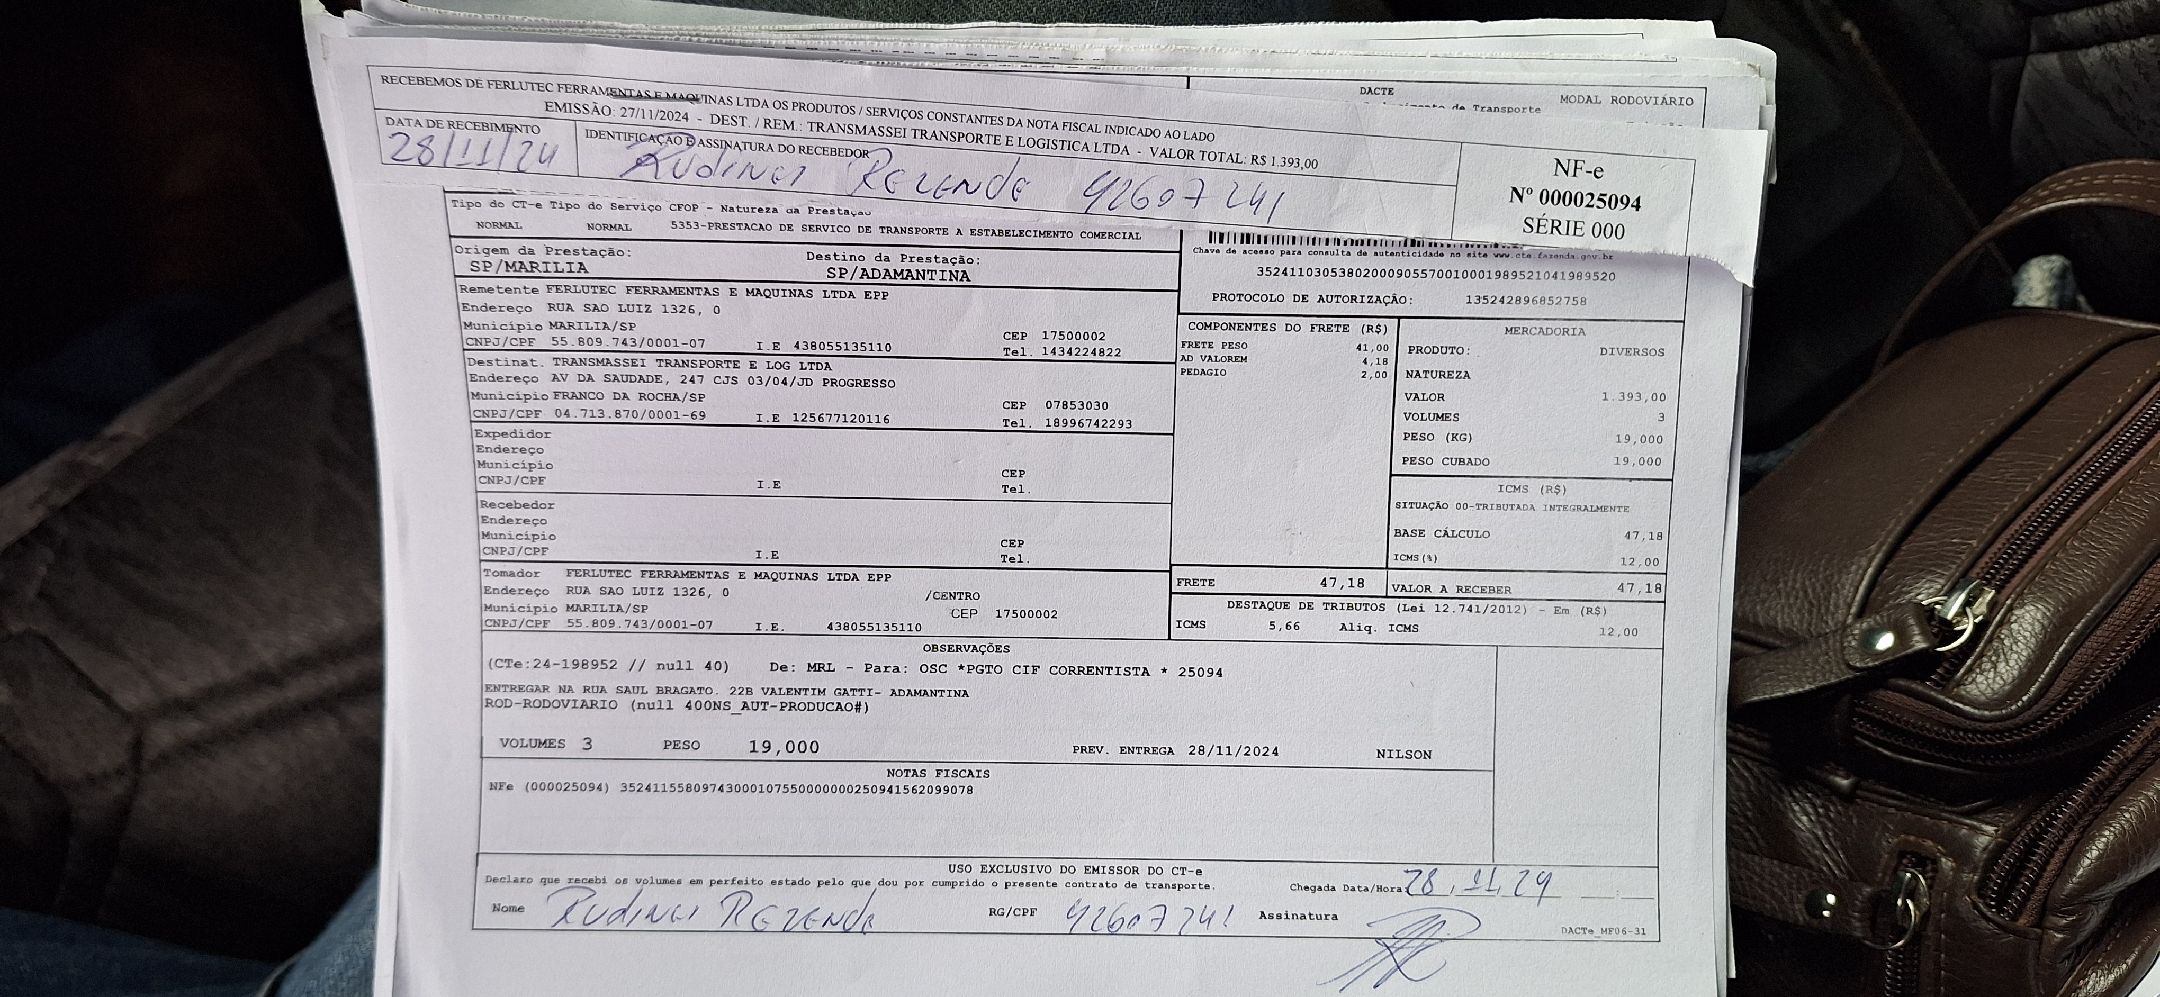 DACTE
de Transporte
MODAL RODOVIÁRIO
RECEBEMOS DE FERLUTEC FERRAMENTAS E MAQUINAS LTDA OS PRODUTOS / SERVIÇOS CONSTANTES DA NOTA FISCAL INDICADO AO LADO
EMISSÃO: 27/11/2024 - DEST. / REM.: TRANSMASSEI TRANSPORTE E LOGISTICA LTDA - VALOR TOTAL: R$ 1.393,00
DATA DE RECEBIMENTO
28/11/24
IDENTIFICAÇÃO E ASSINATURA DO RECEBEDOR
Rudinei Rezende 42607241
NF-e
Nº 000025094
SÉRIE 000
Tipo do CT-e Tipo do Serviço CFOP - Natureza da Prestação
NORMAL NORMAL 5353-PRESTACAO DE SERVICO DE TRANSPORTE A ESTABELECIMENTO COMERCIAL
Origem da Prestação:
SP/MARILIA
Destino da Prestação:
SP/ADAMANTINA
Chave de acesso para consulta de autenticidade no site www.cte.fazenda.gov.br
35241103053802000905570010001989521041989520
PROTOCOLO DE AUTORIZAÇÃO: 135242896852758
Remetente FERLUTEC FERRAMENTAS E MAQUINAS LTDA EPP
Endereço RUA SAO LUIZ 1326, 0
Município MARILIA/SP CEP 17500002
CNPJ/CPF 55.809.743/0001-07 I.E 438055135110 Tel. 1434224822
Destinat. TRANSMASSEI TRANSPORTE E LOG LTDA
Endereço AV DA SAUDADE, 247 CJS 03/04/JD PROGRESSO
Município FRANCO DA ROCHA/SP CEP 07853030
CNPJ/CPF 04.713.870/0001-69 I.E 125677120116 Tel. 18996742293
Expedidor
Endereço
Município CEP
CNPJ/CPF I.E Tel.
Recebedor
Endereço
Município CEP
CNPJ/CPF I.E Tel.
Tomador FERLUTEC FERRAMENTAS E MAQUINAS LTDA EPP
Endereço RUA SAO LUIZ 1326, 0 /CENTRO
Município MARILIA/SP CEP 17500002
CNPJ/CPF 55.809.743/0001-07 I.E. 438055135110
COMPONENTES DO FRETE (R$)
FRETE PESO 41,00
AD VALOREM 4,18
PEDAGIO 2,00
MERCADORIA
PRODUTO: DIVERSOS
NATUREZA
VALOR 1.393,00
VOLUMES 3
PESO (KG) 19,000
PESO CUBADO 19,000
ICMS (R$)
SITUAÇÃO 00-TRIBUTADA INTEGRALMENTE
BASE CÁLCULO 47,18
ICMS(%) 12,00
FRETE 47,18
VALOR A RECEBER 47,18
DESTAQUE DE TRIBUTOS (Lei 12.741/2012) - Em (R$)
ICMS 5,66 Aliq. ICMS 12,00
OBSERVAÇÕES
(CTe:24-198952 // null 40) De: MRL - Para: OSC *PGTO CIF CORRENTISTA * 25094
ENTREGAR NA RUA SAUL BRAGATO. 22B VALENTIM GATTI- ADAMANTINA
ROD-RODOVIARIO (null 400NS_AUT-PRODUCAO#)
VOLUMES 3 PESO 19,000 PREV. ENTREGA 28/11/2024 NILSON
NOTAS FISCAIS
NFe (000025094) 35241155809743000107550000000250941562099078
USO EXCLUSIVO DO EMISSOR DO CT-e
Declaro que recebi os volumes em perfeito estado pelo que dou por cumprido o presente contrato de transporte.
Chegada Data/Hora 28 11 24
Nome Rudinei Rezende RG/CPF 42607241 Assinatura
DACTe_MF06-31